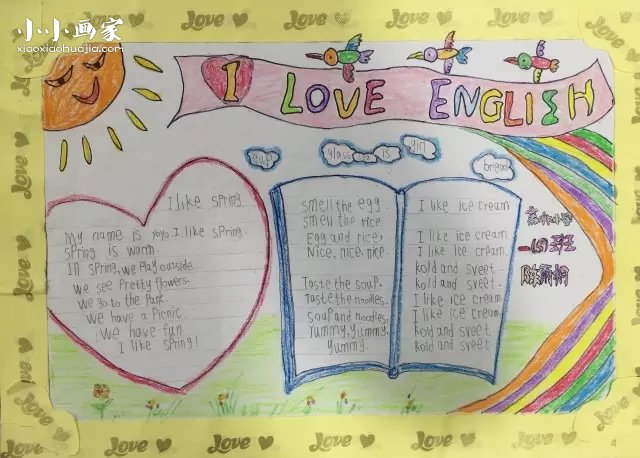 小小画家
xiaoxiaohuajia.com
I LOVE ENGLISH
cup
glass
is
girl
bread
I like spring
My name is yoyo I like spring.
Spring is worm.
In spring, we play outside
we see Pretty flowers.
we go to the Park.
we have a Picnic.
we have fun
I like spring!
smell the egg
smell the rice
Egg and rice,
Nice, nice, nice.
Taste the soup.
Taste the noodles.
soup and noodles
Yummy, yummy,
Yummy.
I like ice cream
I like ice cream.
I like ice cream.
kold and sveet.
kold and sveet
I like ice cream
I like ice cream
kold and sveet
kold and sveet
一(1)班
Love Love Love Love Love Love
Love
Love
Love
Love
Love Love Love Love Love Love